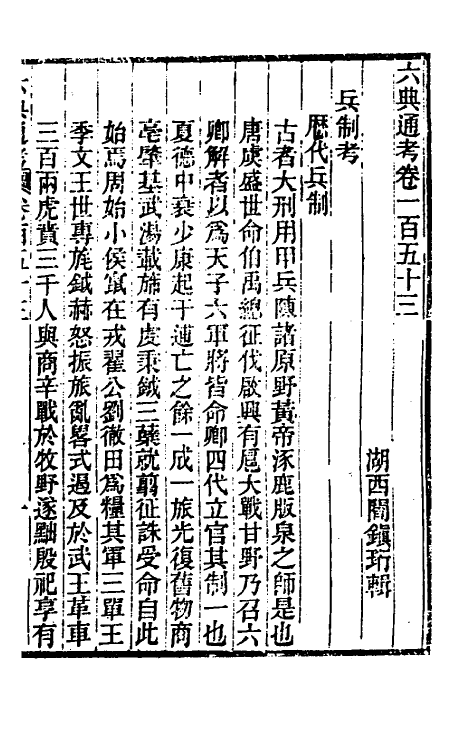 六典通考卷一百五十三
湖西閻鎮珩輯
兵制考
歷代兵制
古者大刑用甲兵陳諸原野黃帝涿鹿版泉之師是也
唐虞盛世命伯禹總征伐啟興有扈大戰甘野乃召六
卿解者以為天子六軍將皆命卿四代立官其制一也
夏德中衰少康起于逋亡之餘一成一旅光復舊物商
亳肇基武湯載旆有虔秉鉞三蘖就翦征誅受命自此
始焉周始小侯竄在戎翟公劉徹田為糧其軍三單王
季文王世專旄鉞赫怒振旅亂畧式遏及於武王革車
三百兩虎賁三千人與商辛戰於牧野遂黜殷祀享有